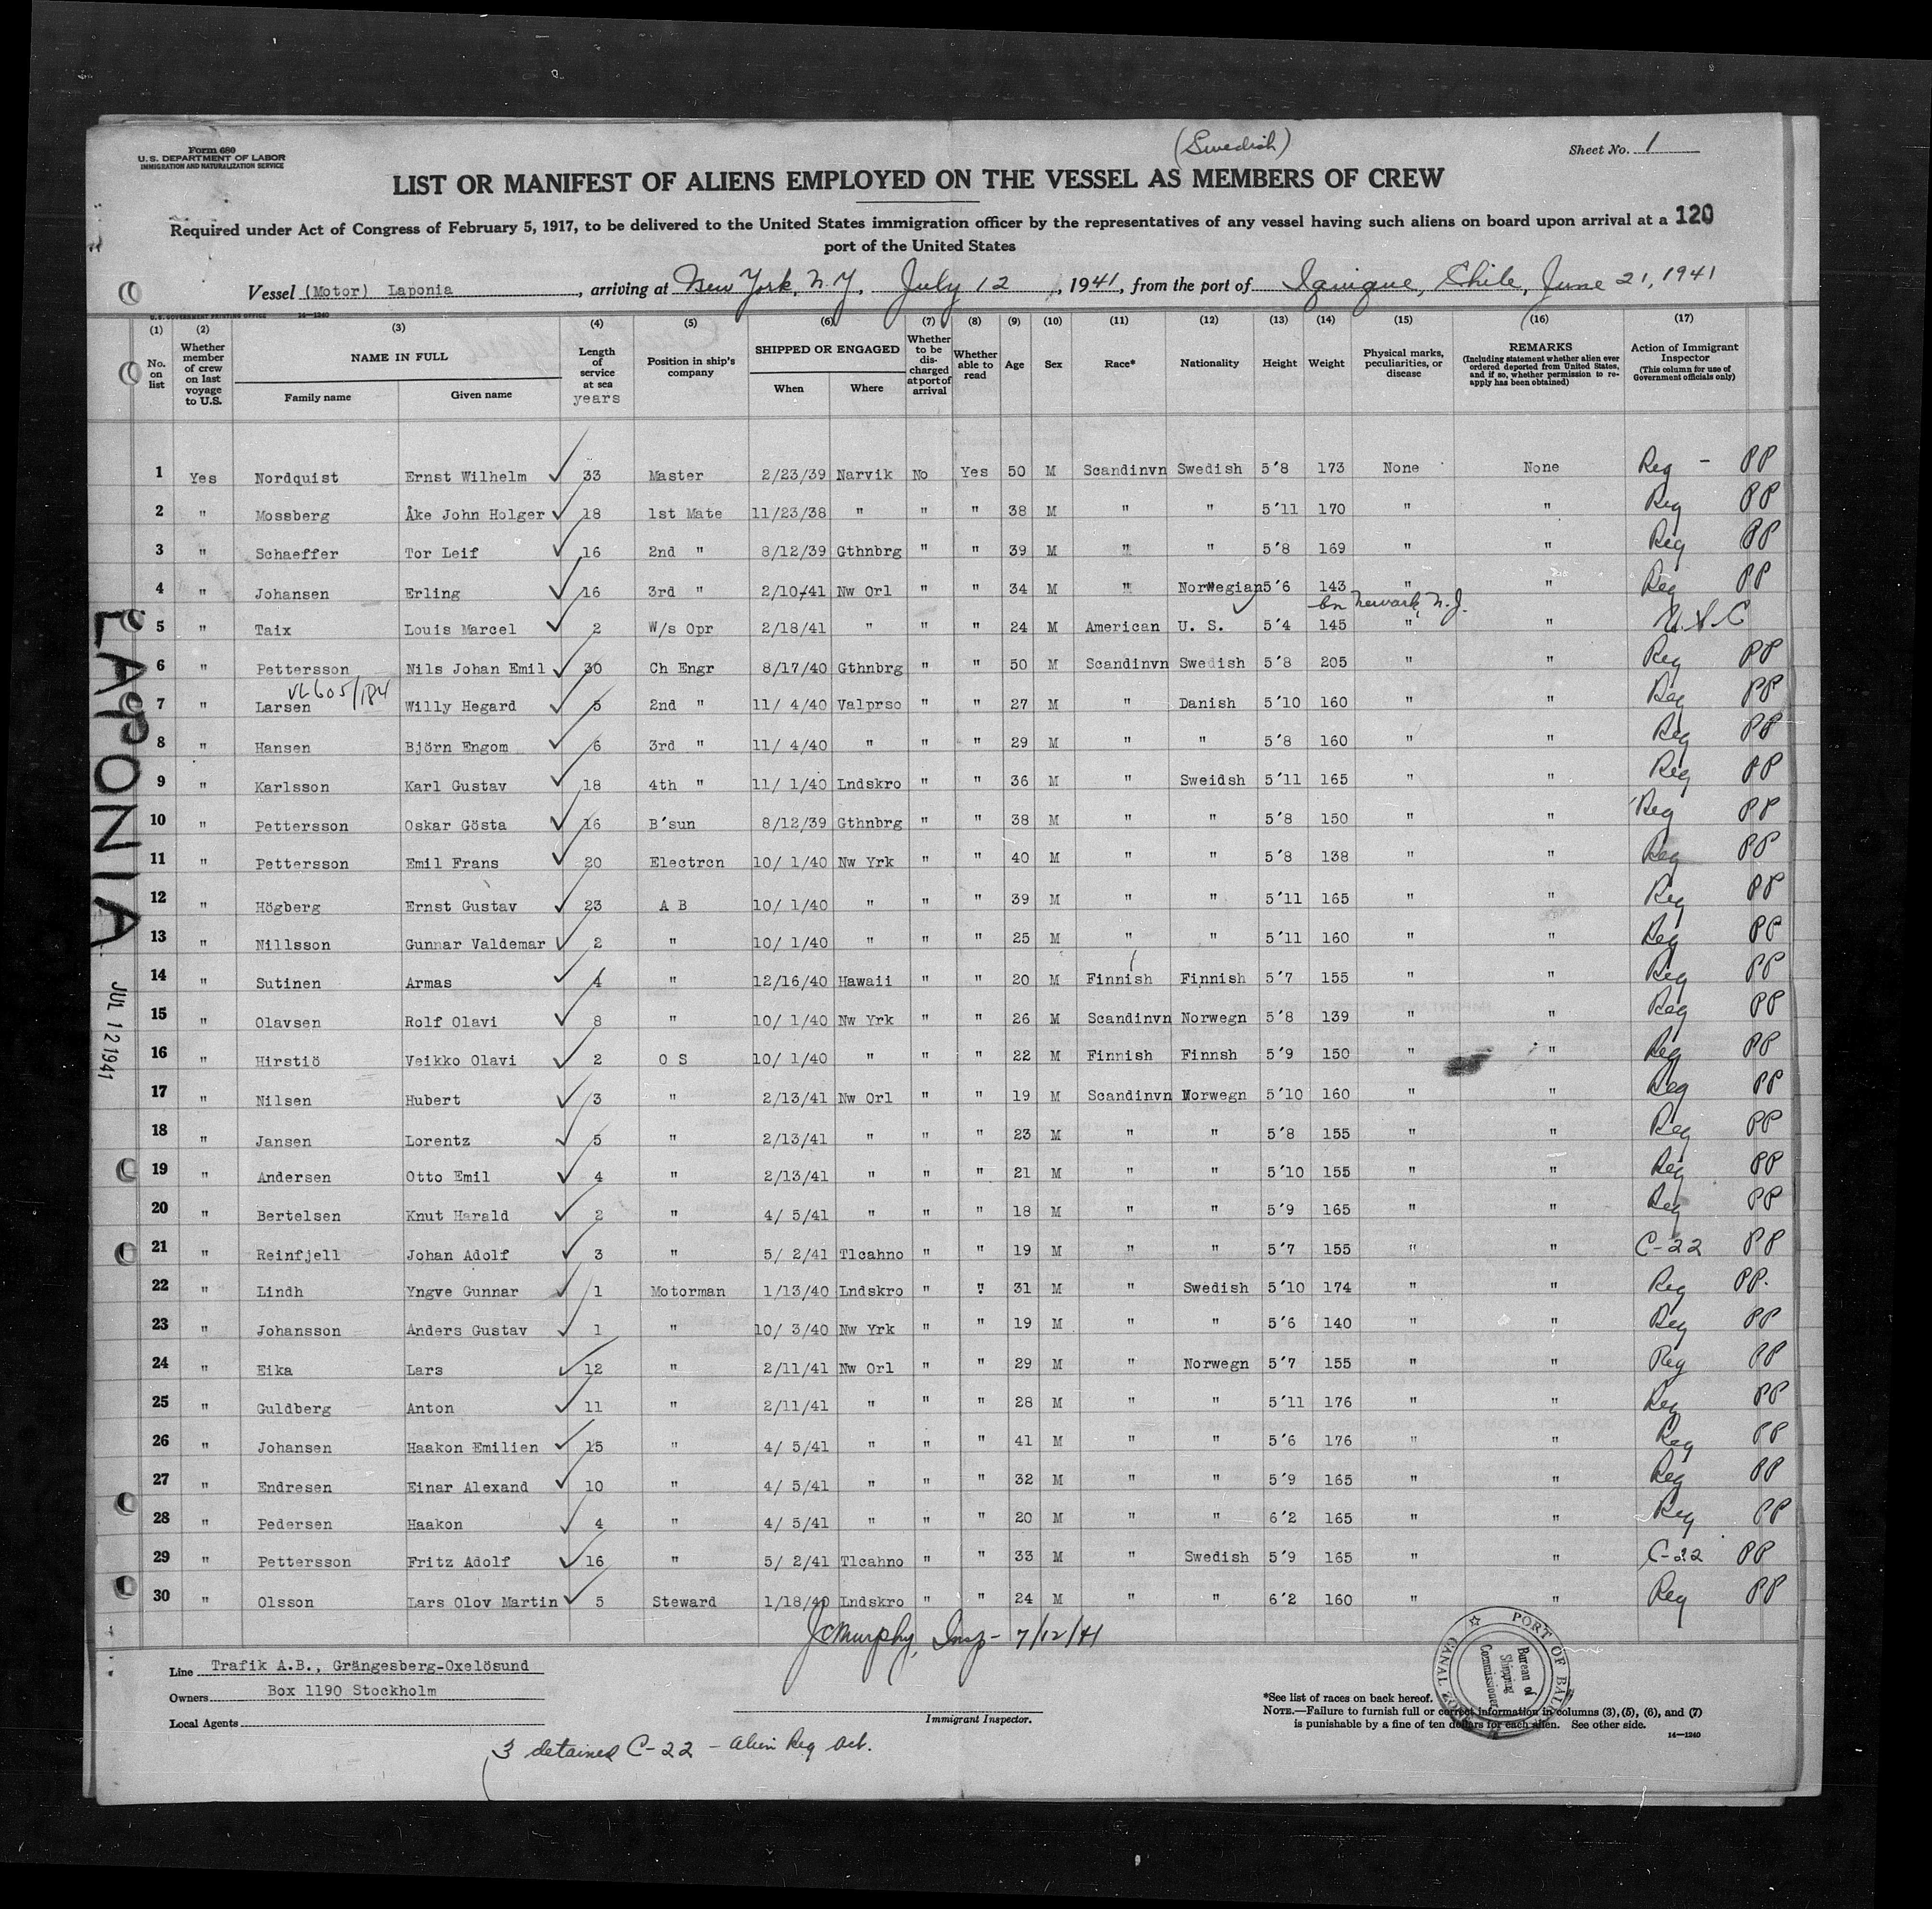 Form 680
U.S. DEPARTMENT OF LABOR
IMMIGRATION AND NATURALIZATION SERVICE
(Swedish)
Sheet No. 1
LIST OR MANIFEST OF ALIENS EMPLOYED ON THE VESSEL AS MEMBERS OF CREW
Required under Act of Congress of February 5, 1917, to be delivered to the United States immigration officer by the representatives of any vessel having such aliens on board upon arrival at a 120
port of the United States
Vessel (Motor) Laponia, arriving at New York, N.Y., July 12, 1941, from the port of Iquique, Chile, June 21, 1941
U.S. GOVERNMENT PRINTING OFFICE 14—1240
(1) (2) (3) (4) (5) (6) (7) (8) (9) (10) (11) (12) (13) (14) (15) (16) (17)
No. on list
Whether member of crew on last voyage to U.S.
NAME IN FULL
Family name
Given name
Length of service at sea years
Position in ship's company
SHIPPED OR ENGAGED
When
Where
Whether to be discharged at port of arrival
Whether able to read
Age
Sex
Race*
Nationality
Height
Weight
Physical marks, peculiarities, or disease
REMARKS
(Including statement whether alien ever ordered deported from United States, and if so, whether permission to reapply has been obtained)
Action of Immigrant Inspector
(This column for use of Government officials only)
1 Yes Nordquist Ernst Wilhelm ✓ 33 Master 2/23/39 Narvik No Yes 50 M Scandinvn Swedish 5'8 173 None None Reg - PP
2 " Mossberg Åke John Holger ✓ 18 1st Mate 11/23/38 " " " 38 M " " 5'11 170 " " Reg PP
3 " Schaeffer Tor Leif ✓ 16 2nd " 8/12/39 Gthnbrg " " 39 M " " 5'8 169 " " Reg PP
4 " Johansen Erling ✓ 16 3rd " 2/10/41 Nw Orl " " 34 M " Norwegian 5'6 143 " " Reg PP
bn Newark, N.J.
5 " Taix Louis Marcel ✓ 2 W/s Opr 2/18/41 " " " 24 M American U. S. 5'4 145 " " U.S.C
6 " Pettersson Nils Johan Emil ✓ 30 Ch Engr 8/17/40 Gthnbrg " " 50 M Scandinvn Swedish 5'8 205 " " Reg PP
VL605/184
7 " Larsen Willy Hegard ✓ 5 2nd " 11/ 4/40 Valprso " " 27 M " Danish 5'10 160 " " Reg PP
8 " Hansen Björn Engom ✓ 6 3rd " 11/ 4/40 " " " 29 M " " 5'8 160 " " Reg PP
9 " Karlsson Karl Gustav ✓ 18 4th " 11/ 1/40 Lndskro " " 36 M " Sweidsh 5'11 165 " " Reg PP
10 " Pettersson Oskar Gösta ✓ 16 B'sun 8/12/39 Gthnbrg " " 38 M " " 5'8 150 " " Reg PP
11 " Pettersson Emil Frans ✓ 20 Electrcn 10/ 1/40 Nw Yrk " " 40 M " " 5'8 138 " " Reg PP
12 " Högberg Ernst Gustav ✓ 23 A B 10/ 1/40 " " " 39 M " " 5'11 165 " " Reg PP
13 " Nillsson Gunnar Valdemar ✓ 2 " 10/ 1/40 " " " 25 M " " 5'11 160 " " Reg PP
14 " Sutinen Armas ✓ 4 " 12/16/40 Hawaii " " 20 M Finnish Finnish 5'7 155 " " Reg PP
15 " Olavsen Rolf Olavi ✓ 8 " 10/ 1/40 Nw Yrk " " 26 M Scandinvn Norwegn 5'8 139 " " Reg PP
16 " Hirstiö Veikko Olavi ✓ 2 O S 10/ 1/40 " " " 22 M Finnish Finnsh 5'9 150 " " Reg PP
17 " Nilsen Hubert ✓ 3 " 2/13/41 Nw Orl " " 19 M Scandinvn Norwegn 5'10 160 " " Reg PP
18 " Jansen Lorentz ✓ 5 " 2/13/41 " " " 23 M " " 5'8 155 " " Reg PP
19 " Andersen Otto Emil ✓ 4 " 2/13/41 " " " 21 M " " 5'10 155 " " Reg PP
20 " Bertelsen Knut Harald ✓ 2 " 4/ 5/41 " " " 18 M " " 5'9 165 " " Reg PP
21 " Reinfjell Johan Adolf ✓ 3 " 5/ 2/41 Tlcahno " " 19 M " " 5'7 155 " " C-22 PP
22 " Lindh Yngve Gunnar ✓ 1 Motorman 1/13/40 Lndskro " " 31 M " Swedish 5'10 174 " " Reg PP.
23 " Johansson Anders Gustav ✓ 1 " 10/ 3/40 Nw Yrk " " 19 M " " 5'6 140 " " Reg PP
24 " Eika Lars ✓ 12 " 2/11/41 Nw Orl " " 29 M " Norwegn 5'7 155 " " Reg PP
25 " Guldberg Anton ✓ 11 " 2/11/41 " " " 28 M " " 5'11 176 " " Reg PP
26 " Johansen Haakon Emilien ✓ 15 " 4/ 5/41 " " " 41 M " " 5'6 176 " " Reg PP
27 " Endresen Einar Alexand ✓ 10 " 4/ 5/41 " " " 32 M " " 5'9 165 " " Reg PP
28 " Pedersen Haakon ✓ 4 " 4/ 5/41 " " " 20 M " " 6'2 165 " " Reg PP
29 " Pettersson Fritz Adolf ✓ 16 " 5/ 2/41 Tlcahno " " 33 M " Swedish 5'9 165 " " C-22 PP
30 " Olsson Lars Olov Martin ✓ 5 Steward 1/18/40 Lndskro " " 24 M " " 6'2 160 " " Reg PP
LAPONIA
JUL 12 1941
JCMurphy, Insp- 7/12/41
Line Trafik A.B., Grängesberg-Oxelösund
Owners Box 1190 Stockholm
Local Agents
Immigrant Inspector.
PORT OF BALBOA CANAL ZONE
Bureau of Shipping Commissioner
*See list of races on back hereof.
NOTE.—Failure to furnish full or correct information in columns (3), (5), (6), and (7)
is punishable by a fine of ten dollars for each alien. See other side.
14—1240
3 detained C-22 - Alien Reg Act.